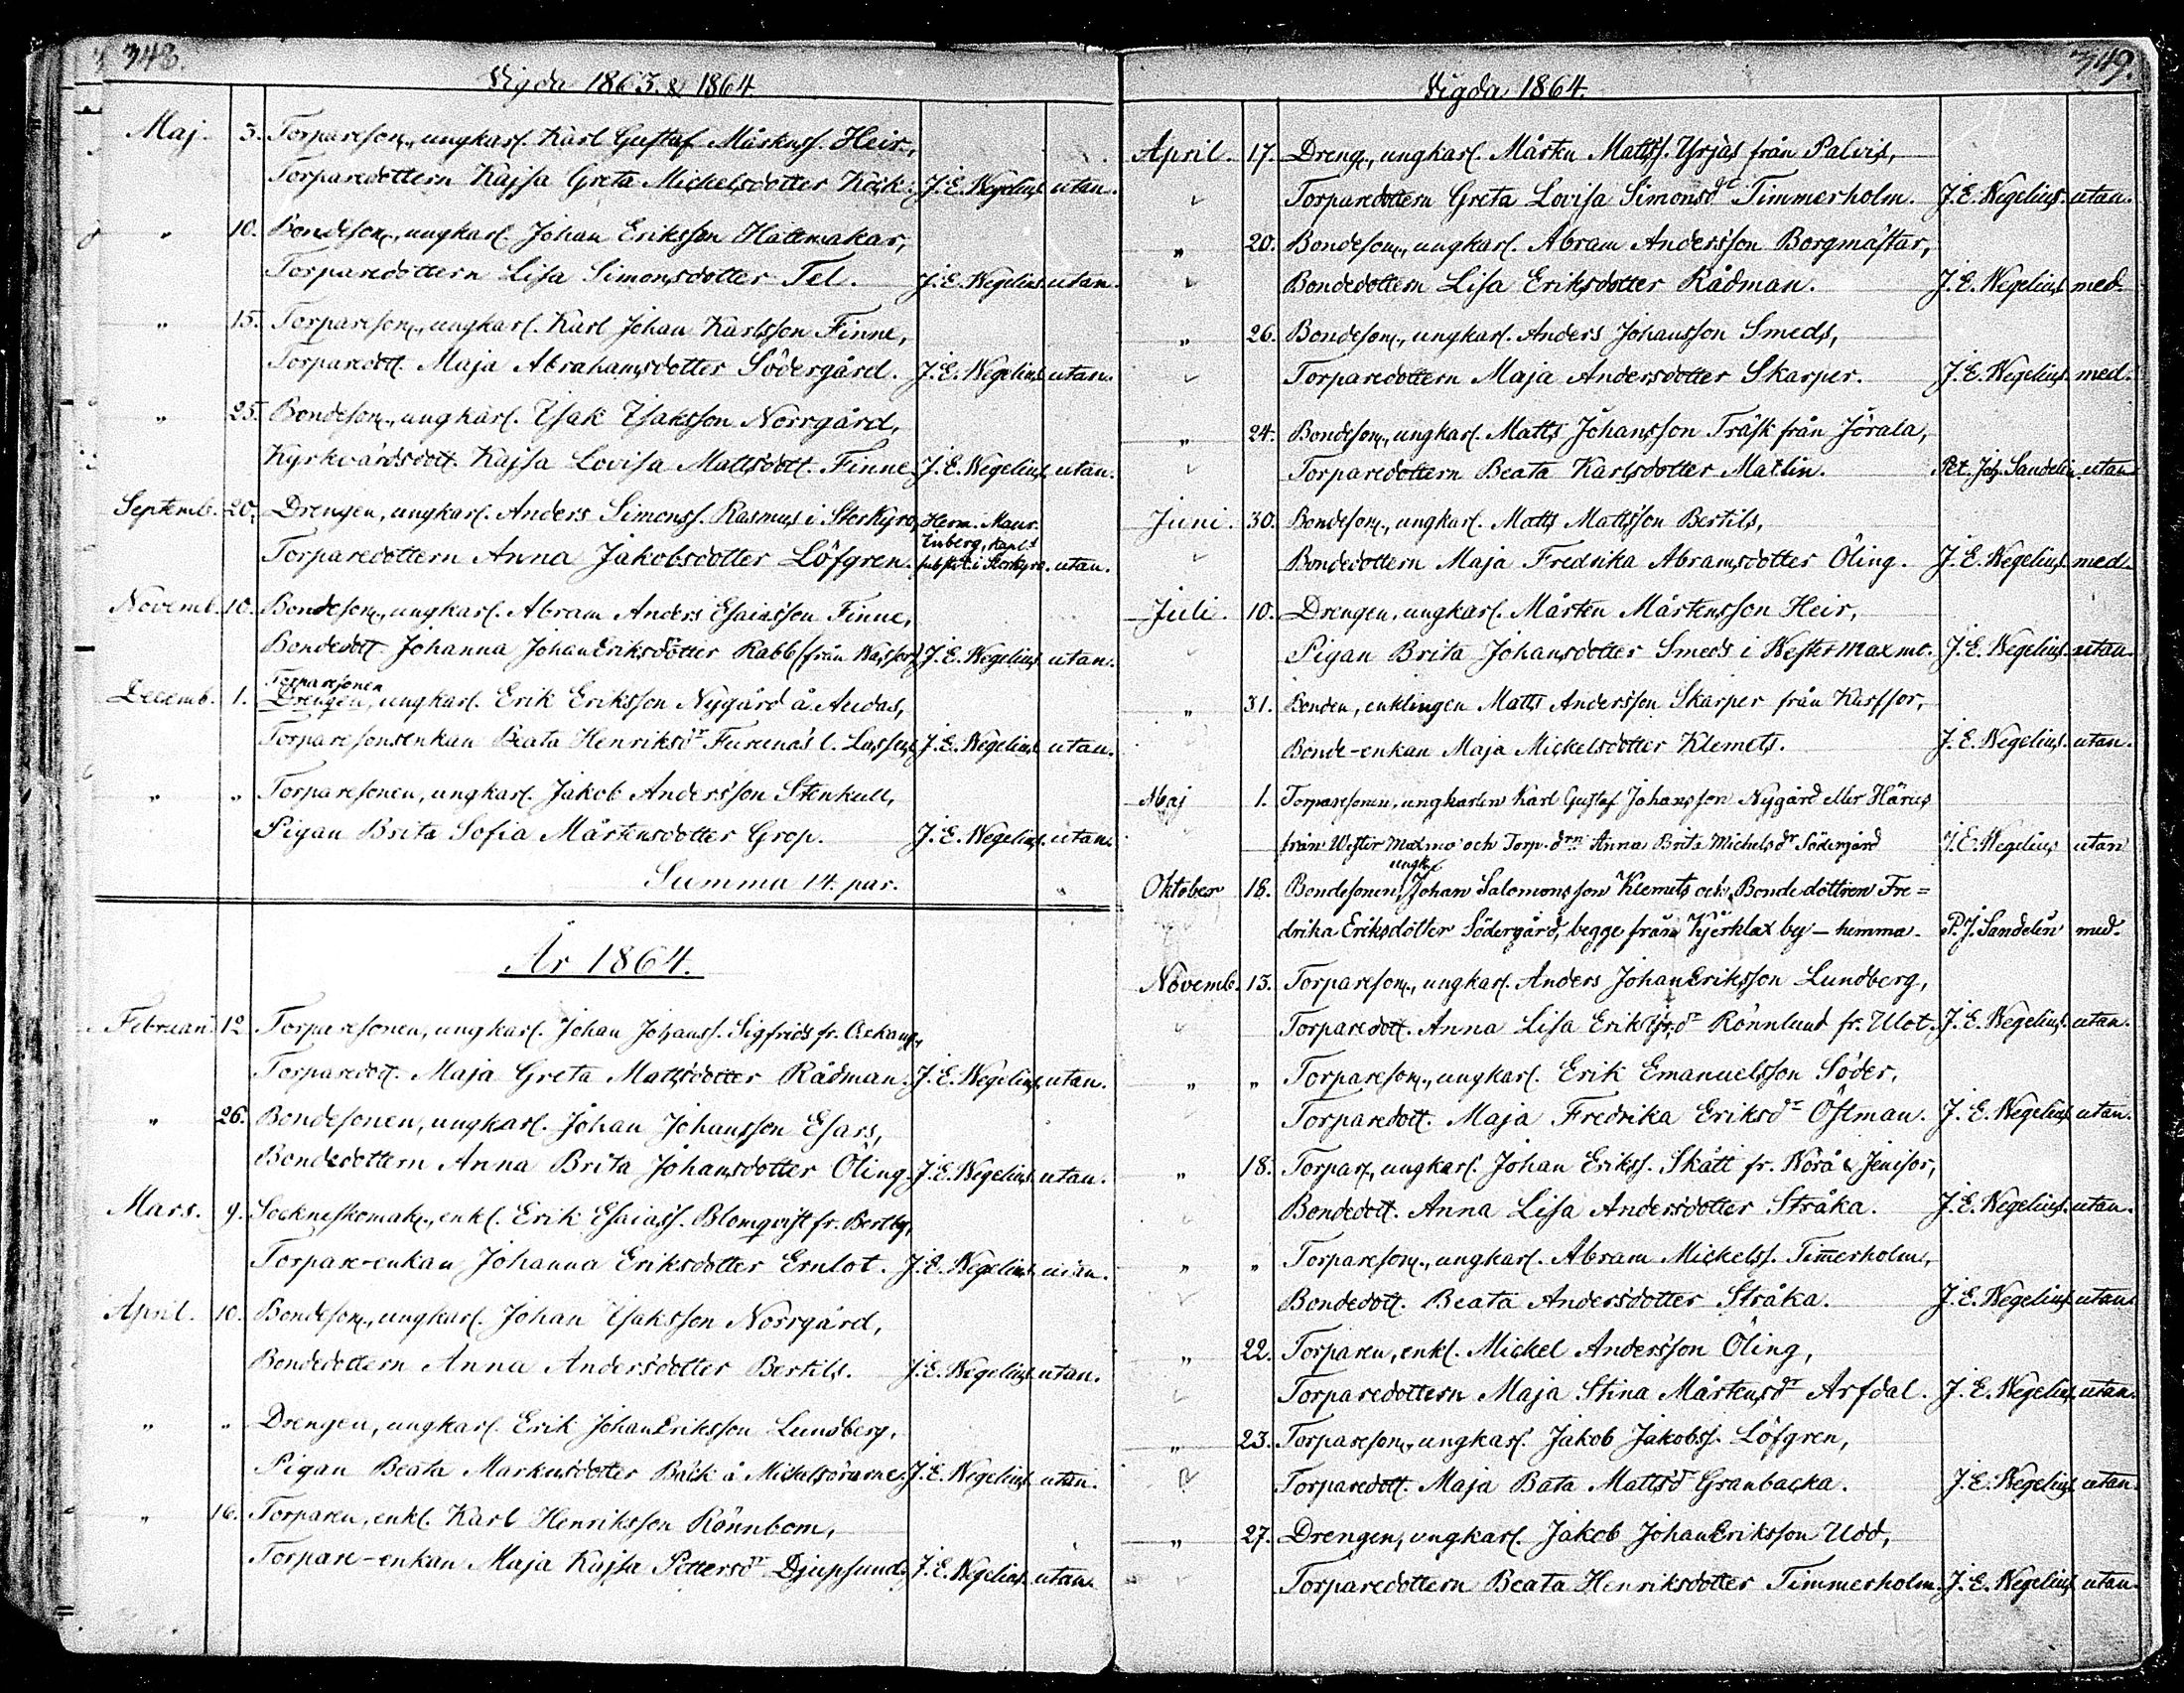 348.
Vigda 1863 & 1864
Maj. 3. Torpareson., ungkarl. Karl Gustaf Mårtens. Heir,
Torparedottern Kajsa Greta Mickelsdotter Köck. J. E. Wegelius. utan.
" 10. Bondeson., ungkarl. Johan Eriksson Hattmakar,
Torparedottern Lisa Simonsdotter Tel. J. E. Wegelius utan.
" 15. Torpareson., ungkarl. Karl Johan Karlsson Finne,
Torparedott. Maja Abrahamsdotter Södergård. J. E. Wegelius utan.
" 25. Bondeson., ungkarl. Isak Isaksson Norrgård,
Kyrkvärdsdott. Kajsa Lovisa Mattsdott. Finne. J. E. Wegelius. utan.
Septemb. 20. Drengen, ungkarl. Anders Simonss. Rasmus i Storkyro, Herm. Maur.
Torparedottern Anna Jakobsdotter Löfgren. Enberg, Kapl. i Storkyro. utan.
Novemb. 10. Bondeson., ungkarl. Abram Anders Esaiasson Finne,
Bondedott. Johanna JohanEriksdotter Rabb (från Wassor). J. E. Wegelius utan.
Torparesonen
Decemb. 1. Drengen, ungkarl. Erik Eriksson Nygård å Andas,
Torparesonsenkan Beata Henriksdr Furunäs l. Lassus J. E. Wegelius utan.
" " Torparesonen, ungkarl. Jakob Andersson Stenkull,
Pigan Brita Sofia Mårtensdotter Grop. J. E. Wegelius. utan.
Summa 14. par.
År 1864.
Februari 12. Torparesonen, ungkarl. Johan Johanss. Sigfrids fr. Oxkang.,
Torparedott. Maja Greta Mattsdotter Rådman. J. E. Wegelius. utan.
" 26. Bondesonen, ungkarl. Johan Johansson Esars,
Bondedottern Anna Brita Johansdotter Öling. J. E. Wegelius. utan.
Mars. 9. Sockneskomak., enkl. Erik Esaiass. Blomqvist fr. Bertby,
Torpare-enkan Johanna Eriksdotter Ernlot. J. E. Wegelius. utan.
April. 10. Bondeson., ungkarl. Johan Isaksson Norrgård,
Bondedottern Anna Andersdotter Bertils. J. E. Wegelius utan.
" " Drengen, ungkarl. Erik JohanEriksson Lundberg,
Pigan Beata Markusdotter Bäck å Mickelsörarne. J. E. Wegelius. utan.
" 16. Torparen, enkl. Karl Henriksson Rönnbom,
Torpare-enkan Maja Kajsa Pettersdr Djupsund. J. E. Wegelius. utan.
349.
Vigda 1864.
April. 17. Dreng., ungkarl. Mårten Mattss. Yrjas från Palvis,
Torparedottern Greta Lovisa Simonsdr Timmerholm. J. E. Wegelius. utan.
" 20. Bondeson., ungkarl. Abram Andersson Borgmästar,
Bondedottern Lisa Eriksdotter Rådman. J. E. Wegelius med.
" 26. Bondeson., ungkarl. Anders Johansson Smeds,
Torparedottern Maja Andersdotter Skarper. J. E. Wegelius. med.
" 24. Bondeson., ungkarl. Matts Johansson Träsk från Jörala,
Torparedottern Beata Karlsdotter Matlin. Pet. Joh. Sandelin. utan
Juni. 30. Bondeson., ungkarl. Matts Mattsson Bertils,
Bondedottern Maja Fredrika Abramsdotter Öling. J. E. Wegelius. med.
Juli. 10. Drengen, ungkarl. Mårten Mårtensson Heir,
Pigan Brita Johansdotter Smeds i Westermaxmo. J. E. Wegelius. utan.
" 31. Bonden, enklingen Matts Andersson Skarper från Karssor,
Bonde-enkan Maja Mickelsdotter Klemets. J. E. Wegelius. utan.
Maj 1. Torparesonen, ungkarlen Karl Gustaf Johansson Nygård eller Härus
från Wester Maxmo och Torp.drn Anna Brita Michelsdr Södergård J. E. Wegelius utan
ungk.
Oktober 18. Bondesonen Johan Salomonsson Klemets och Bondedottren Fre=
drika Eriksdotter Södergård, begge från Kjerklax by – hemma. P. J. Sandelin med.
Novemb. 13. Torpareson., ungkarl. Anders JohanEriksson Lundberg,
Torparedott. Anna Lisa Erikdr Rönnlund fr. Ulot. J. E. Wegelius. utan.
" " Torpareson., ungkarl. Erik Emanuelsson Söder,
Torparedott. Maja Fredrika Eriksdr Östman. J. E. Wegelius utan.
" 18. Torpar., ungkarl. Johan Erikss. Skått fr. Norå & Jenisor,
Bondedott. Anna Lisa Andersdotter Stråka. J. E. Wegelius. utan.
" " Torpareson., ungkarl. Abram Mickelss. Timmerholm,
Bondedott. Beata Andersdotter Stråka. J. E. Wegelius utan.
" 22. Torparen, enkl. Mickel Andersson Öling,
Torparedottern Maja Stina Mårtensdr Arfdal. J. E. Wegelius utan.
" 23. Torpareson., ungkarl. Jakob Jakobss. Löfgren,
Torparedott. Maja Bata Mattsdr Granbacka. J. E. Wegelius utan.
" 27. Drengen, ungkarl. Jakob JohanEriksson Udd,
Torparedottern Beata Henriksdotter Timmerholm. J. E. Wegelius utan.